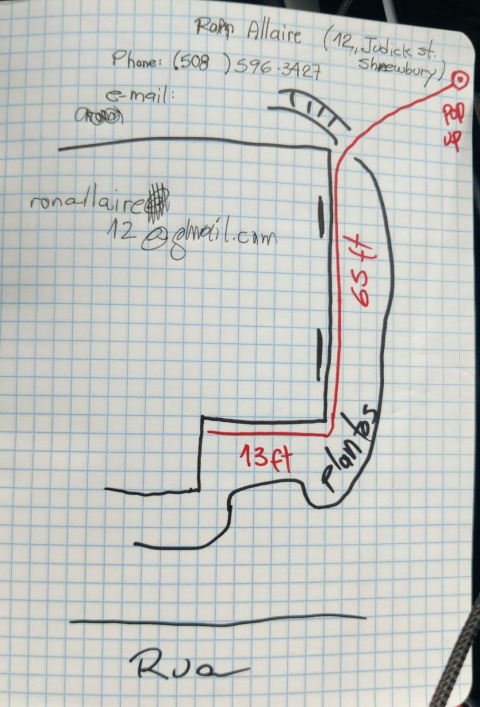 Ronn Allaire (12, Judick st.
Shrewbury)
Phone: (508) 596-3427
e-mail:
ronallaire
12@gmail.com
POP
UP
65 ft
13ft
plantas
Rua